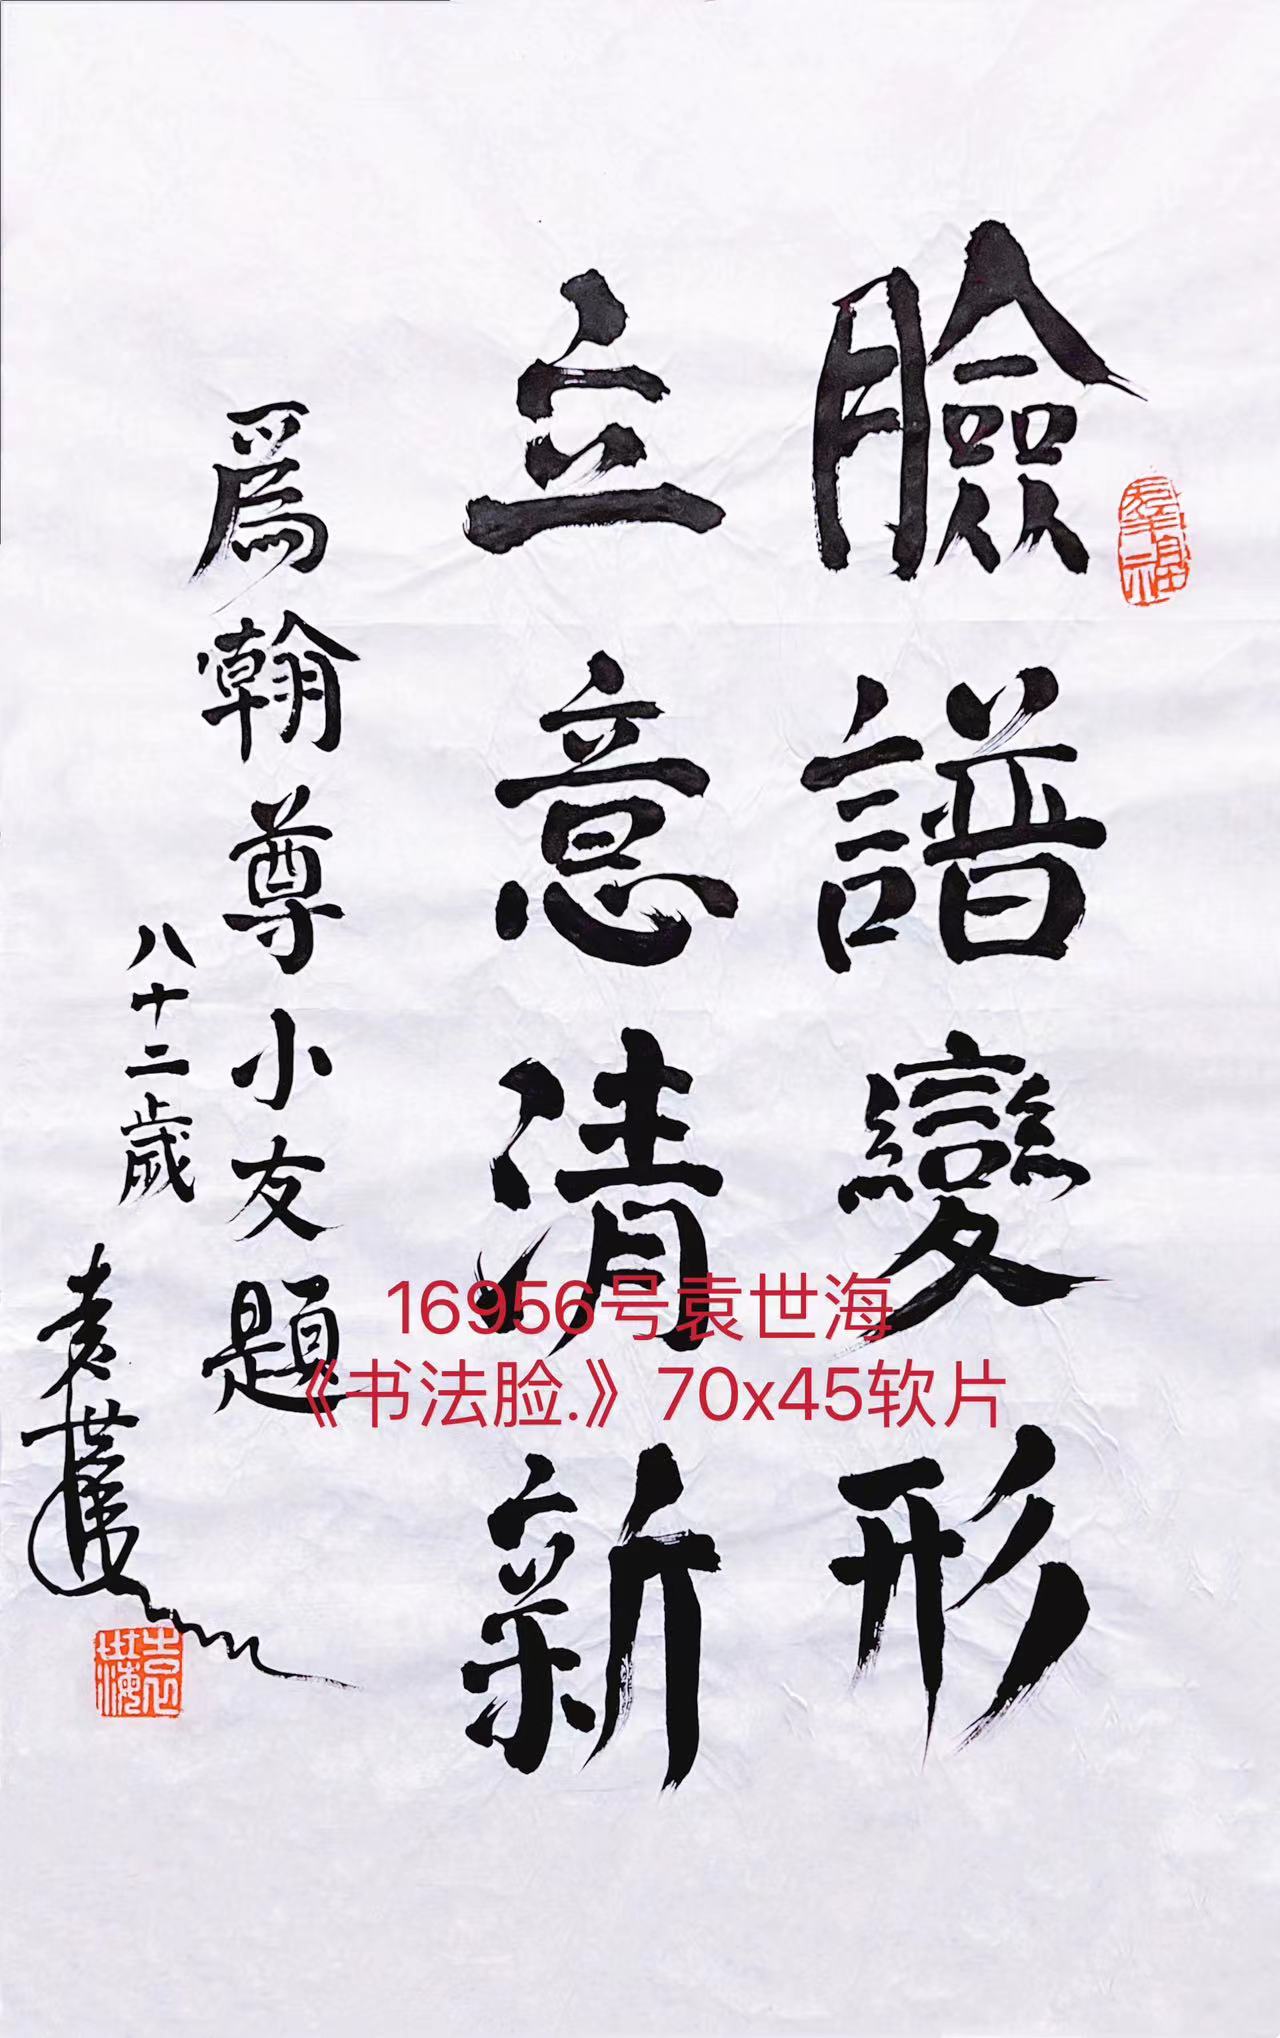 臉譜變形
立意清新
爲翰尊小友題
八十二歲
袁世海
袁世海
16956号袁世海
《书法脸.》70x45软片